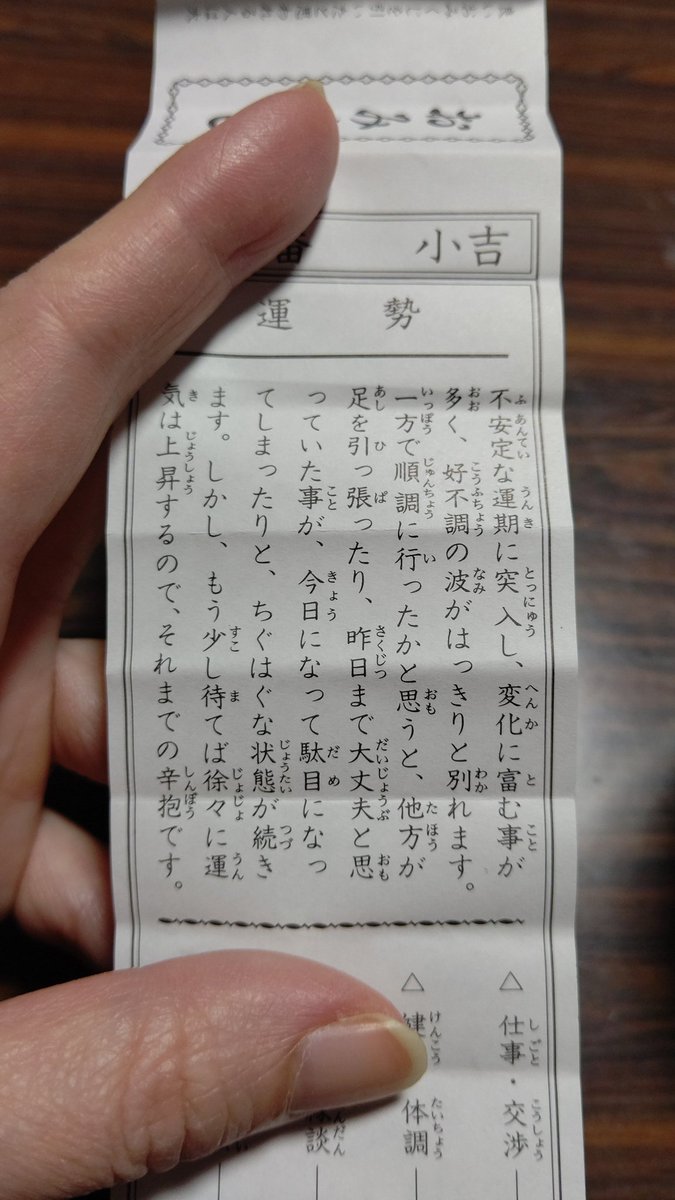 小吉
運勢
不安定な運期に突入し、変化に富む事が
多く、好不調の波がはっきりと別れます。
一方で順調に行ったかと思うと、他方が
足を引っ張ったり、昨日まで大丈夫と思
っていた事が、今日になって駄目になっ
てしまったりと、ちぐはぐな状態が続き
ます。しかし、もう少し待てば徐々に運
気は上昇するので、それまでの辛抱です。
△ 仕事・交渉
△ 健 体調
談